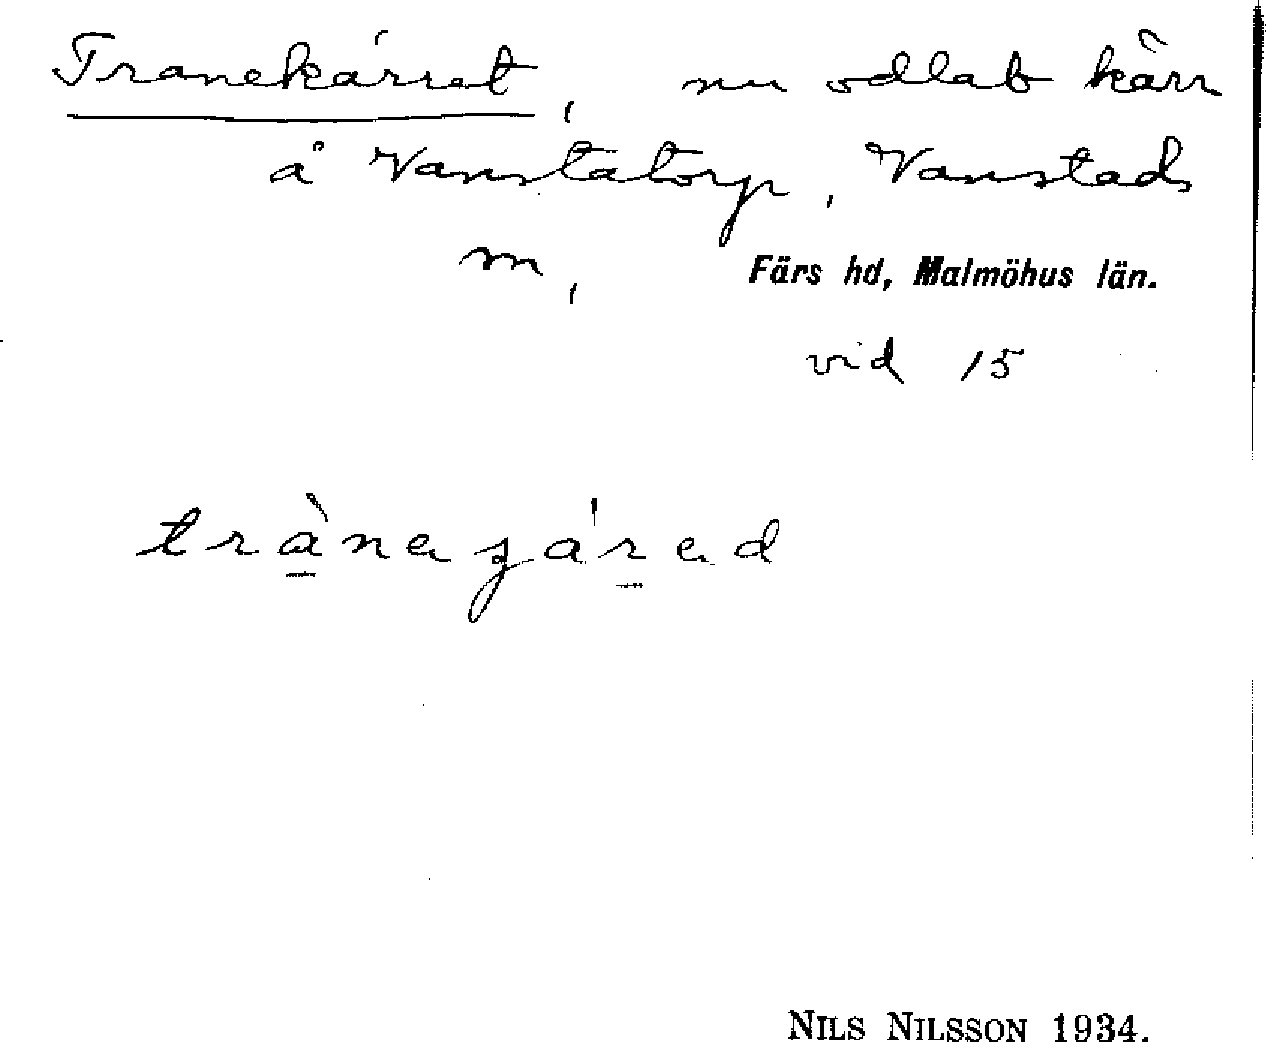 Tranekärret, nu odlat kärr
å Vanstatorp, Vanstads
m,
Färs hd, Malmöhus län.
vid 15
NILS NILSSON 1934.